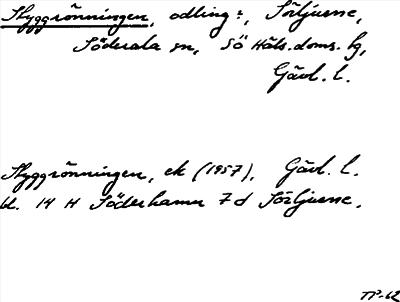 Styggrönningen, odling:, Sörljusne,
Söderala sn, Sö Häls. doms. hg,
Gävl. l.
Styggrönningen, ek (1957), Gävl. l.
bl. 14 H Söderhamn 7 d Sörljusne.
TP-62